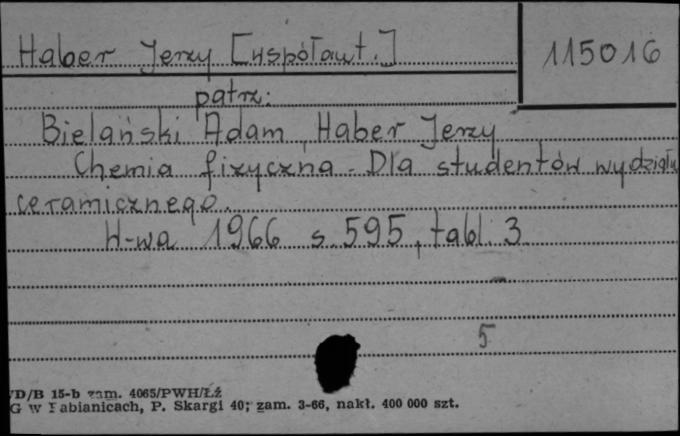 Haber Jerzy [współaut.]
115016
patrz:
Bielański Adam, Haber Jerzy
Chemia fizyczna. Dla studentów wydziału
ceramicznego.
W-wa 1966 s. 595, tabl. 3
5
D/B 15-b zam. 4065/PWH/Łź
G w Pabianicach, P. Skargi 40; zam. 3-66, nakł. 400 000 szt.